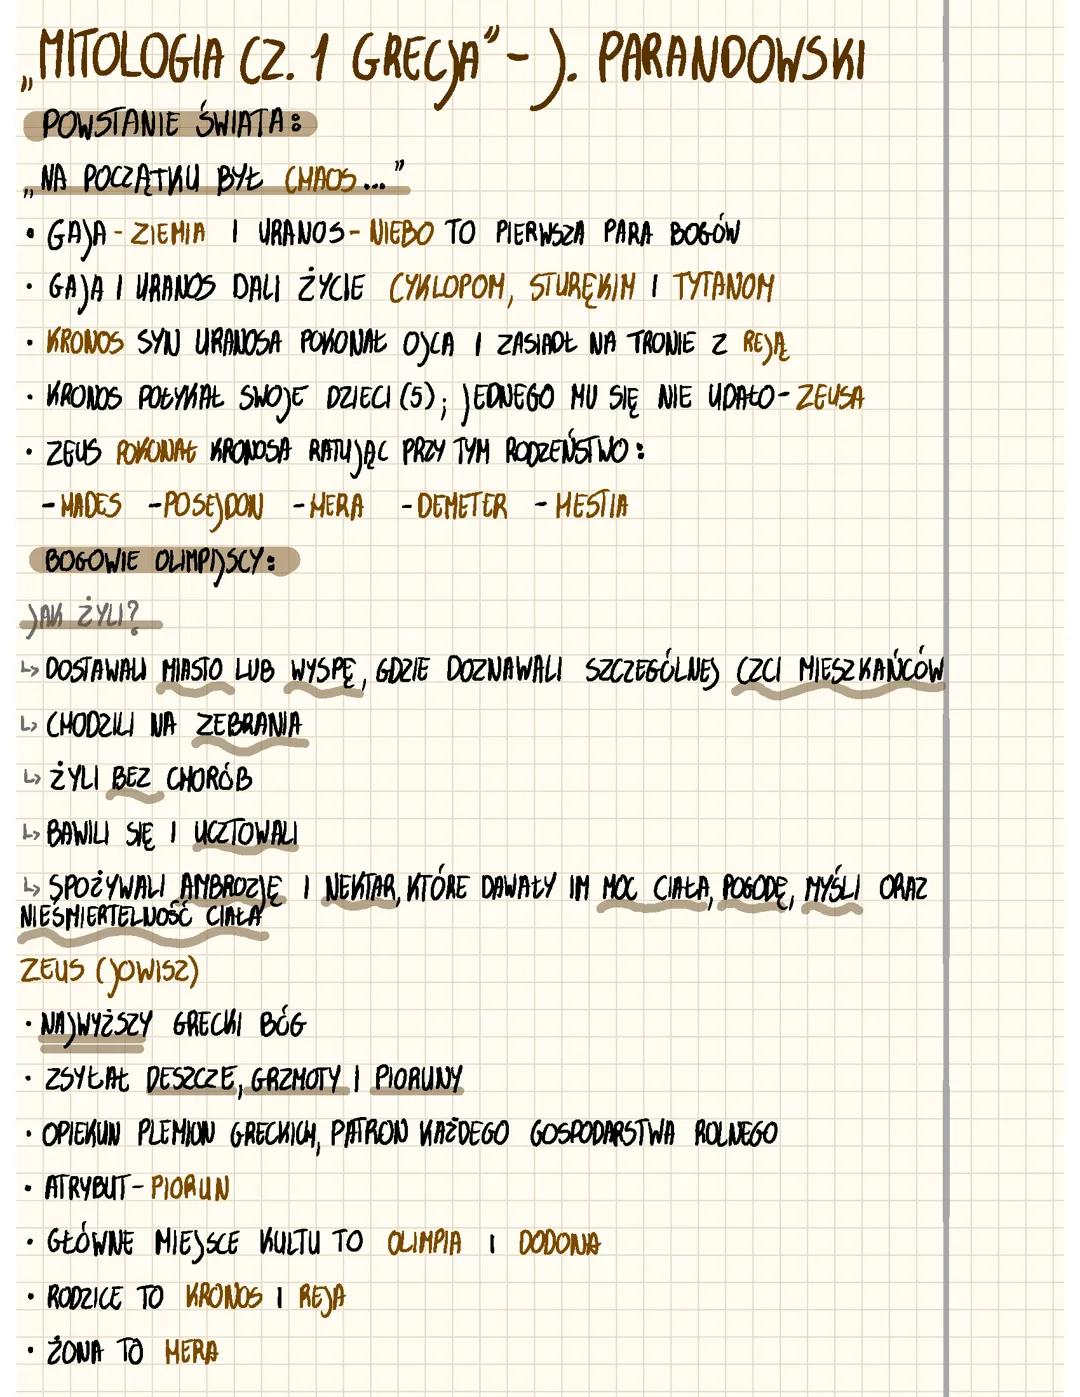 „MITOLOGIA CZ. 1 GRECJA" - J. PARANDOWSKI
POWSTANIE ŚWIATA:
„NA POCZĄTKU BYŁ CHAOS..."
• GAJA - ZIEMIA I URANOS - NIEBO TO PIERWSZA PARA BOGÓW
• GAJA I URANOS DALI ŻYCIE CYKLOPOM, STURĘKIM I TYTANOM
• KRONOS SYN URANOSA POKONAŁ OJCA I ZASIADŁ NA TRONIE Z REJĄ
• KRONOS POŁYKAŁ SWOJE DZIECI (5); JEDNEGO MU SIĘ NIE UDAŁO - ZEUSA
• ZEUS POKONAŁ KRONOSA RATUJĄC PRZY TYM RODZEŃSTWO:
- HADES - POSEJDON - HERA - DEMETER - HESTIA
BOGOWIE OLIMPIJSCY:
JAK ŻYLI?
↳ DOSTAWALI MIASTO LUB WYSPĘ, GDZIE DOZNAWALI SZCZEGÓLNEJ CZCI MIESZKAŃCÓW
↳ CHODZILI NA ZEBRANIA
↳ ŻYLI BEZ CHORÓB
↳ BAWILI SIĘ I UCZTOWALI
↳ SPOŻYWALI AMBROZJĘ I NEKTAR, KTÓRE DAWAŁY IM MOC CIAŁA, POGODĘ, MYŚLI ORAZ
NIEŚMIERTELNOŚĆ CIAŁA
ZEUS (JOWISZ)
• NAJWYŻSZY GRECKI BÓG
• ZSYŁAŁ DESZCZE, GRZMOTY I PIORUNY
• OPIEKUN PLEMION GRECKICH, PATRON KAŻDEGO GOSPODARSTWA ROLNEGO
• ATRYBUT - PIORUN
• GŁÓWNE MIEJSCE KULTU TO OLIMPIA I DODONA
• RODZICE TO KRONOS I REJA
• ŻONA TO HERA